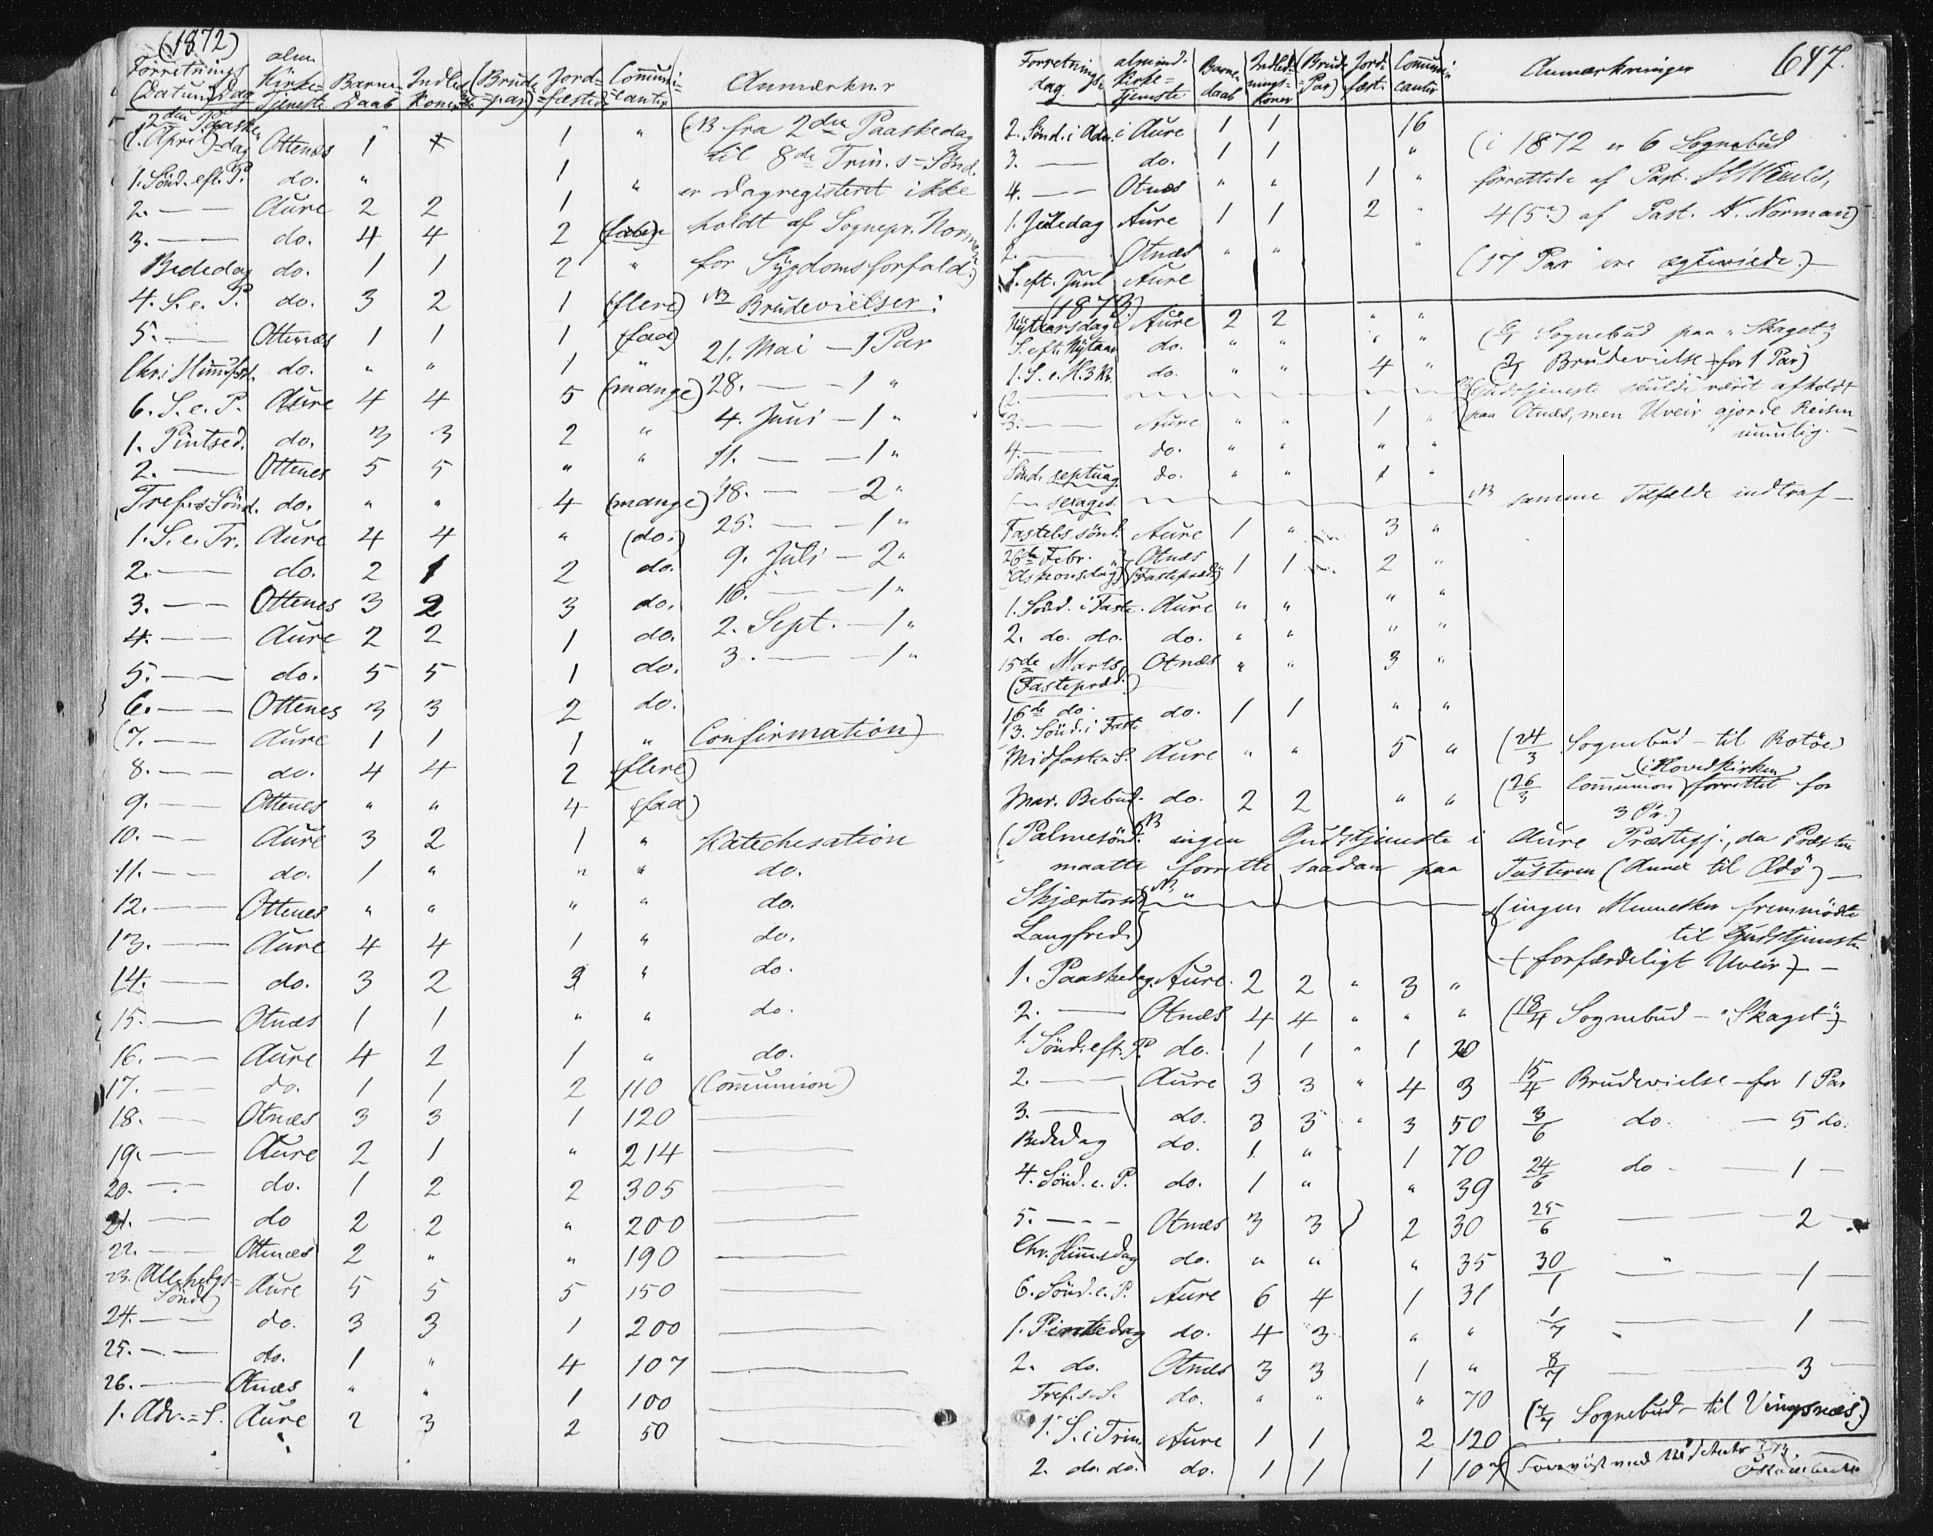 (1872)
Forretnings Datum Dag | alm. Kirke-Tjeneste | Barne-Daab | Indled. Koner | (Brude-par) | Jord-fæstede | Communi-canter | Anmærkn.r
2den Paaske-dag (1. April) Ottenæs 1 1 "
1. Sönd. eft. P. do. " 1 "
2. — — Aure 2 2 1
3. — — do. 4 4 2
Bededag do. 1 1 2 "
4. S. e. P. do. 3 2 1 (flere)
5. — Ottenæs 1 1 1 (faa)
Chri Himmelf. do. " " 1 "
6. S. e. P. Aure 4 4 5 (mange)
1. Pintsed. do. 3 3 2 "
2. — Ottenes 5 5 " "
Tref.s Sönd. do. " " 4 (mange)
1. S. e. Tr. Aure 4 4 " (do.)
2. — — do. 2 1 2 do.
3. — — Ottenes 3 2 3 do.
4. — — Aure 2 2 1 do.
5. — — do. 5 5 1 do.
6. — — Ottenes 3 3 2 do.
(7. — — Aure 1 1 1 " Confirmation)
8. — — do. 4 4 2 (flere)
9. — — Ottenes " " 4 (faa)
10. — — Aure 3 2 1 " Katechesation
11. — — do. 1 " " " do.
12. — — Ottenes " " " " do.
13. — — Aure 4 4 1 " do.
14. — — do. 3 2 3 " do.
15. — — Otnæs 1 1 " " do.
16. — — Aure 4 2 1 " do.
17. — — do. 1 1 2 110 (Communion)
18. — — Otnæs 3 3 1 120 —
19. — — Aure 2 1 " 214 —
20. — — do. 1 2 2 305 —
21. — — do 2 2 " 200 —
22. — — Ottenæs 2 " " 190 —
23. (Allehelgs-Sönd.) Aure 5 5 5 150 —
24. — — do. 3 3 1 200 —
25. — — do. 1 " 4 107 —
26. — — Otnæs " " 1 100 —
1. Adv.=S. Aure 2 3 2 50 —
(NB fra 2den Paaskedag
til 8de Trin.s=Sönd.
er Dagregisteret ikke
holdt af Sognepr. Norman
for Sygdomsforfald.)
NB Brudevielser:
21. Mai — 1 Par
28. — — 1 "
4. Juni — 1 "
11. — — 1 "
18. — — 2 "
25. — — 1 "
9. Juli — 2 "
16. — — 1 "
2. Sept. — 1 "
3. — — 1 "
647.
Forretnings dag | almind. Kirke-Tjeneste | Barne daab | Indled-nings-koner | (Brude-Par) | Jord-fæst. | Communi canter | Anmærkninger
2. Sönd. i Adv. i Aure 1 1 16
3. — do. 1 1 "
4. — — Otnæs " " 1 "
1. Juledag Aure 1 1 2 "
2. — Otnæs " " "
S. eft. Juul Aure
(i 1872 er 6 Sognebud
forrettede af Past.
4 (5?) af Past. N. Norman)
(17 Par ere ægteviede.)
(1873.)
Nytaarsdag i Aure 2 2 " "
S. eft. Nytaar do. " " " "
1. S. e. H. 3 K. do. " " 4 "
(2. —
3. — Aure " " 1 "
4. — do. " " " "
Sönd. septuag do. " " 1 "
(— sexages.
Fastels sönd. Aure 1 " 3 "
26de Febr. (Askeonsdag) Otnæs (Fastepræd.) 1 1 2 "
1. Sönd. i Faste. Aure " " " "
2. do. do. do. " " " "
15de Marts (Fastepræd.) Otnæs " " 3 "
16de do. 3. Sönd. i Faste do. 1 1 " "
Midfaste S. Aure " " 5 "
Mar. Bebud. do. 2 2 " "
Sognebud paa "Skaget"
Brudevielse for 1 Par)
Gudstjeneste skulde været afholdt
paa Otnæs, men Uveir gjorde Reisen
umulig. —
NB samme Tilfælde indtraf —
(24/3 Sognebud — til Rotöe)
(26/3 Communion (i Hovedkirken) forrettet for
3 Pr.)
(Palmesönd. NB ingen Gudstjeneste i Aure Præstegj., da Præsten
maatte forrette saadan paa Tusteren (Annex til Ædö) —
Skjærtorsd. NB "
Langfred.)
(ingen Mennesker fremmödte
til Gudstjeneste
(forfærdeligt Uveir) —
1. Paaskedag. Aure. 2 2 " 3 "
2. — Otnæs 4 4 " " " (18/4 Sognebud — "Skaget")
1. Sönd. eft. P. do. 1 1 " 1 20
2. — — Aure 3 3 " 4 3 15/4 Brudevielse — for 1 Par
3. — do. 3 3 " 3 50 3/6 do. — 5 do.
Bededag do. 1 " 1 70 24/6 do — 1 —
4. Sönd. e. P. do. 1 " " 39
5. — — Otnæs 3 3 2 30 25/6 — — 2 —
Chr. Himmelsdag do. " " " 35 30/1 — " — 1 —
6. Sönd. e. P. Aure 6 4 1 31
1. Pintsedag do. 4 3 " " 1/7 — 1 —
2. do. Otnæs 3 3 1 " 8/7 — 3 —
Tref.s. S. do. " " " 70 (7/7 Sognebud — til Vingsnæs)
1. S. i Trin. Aure 1 1 2 120
2. do. do. do. 1 1 1 107